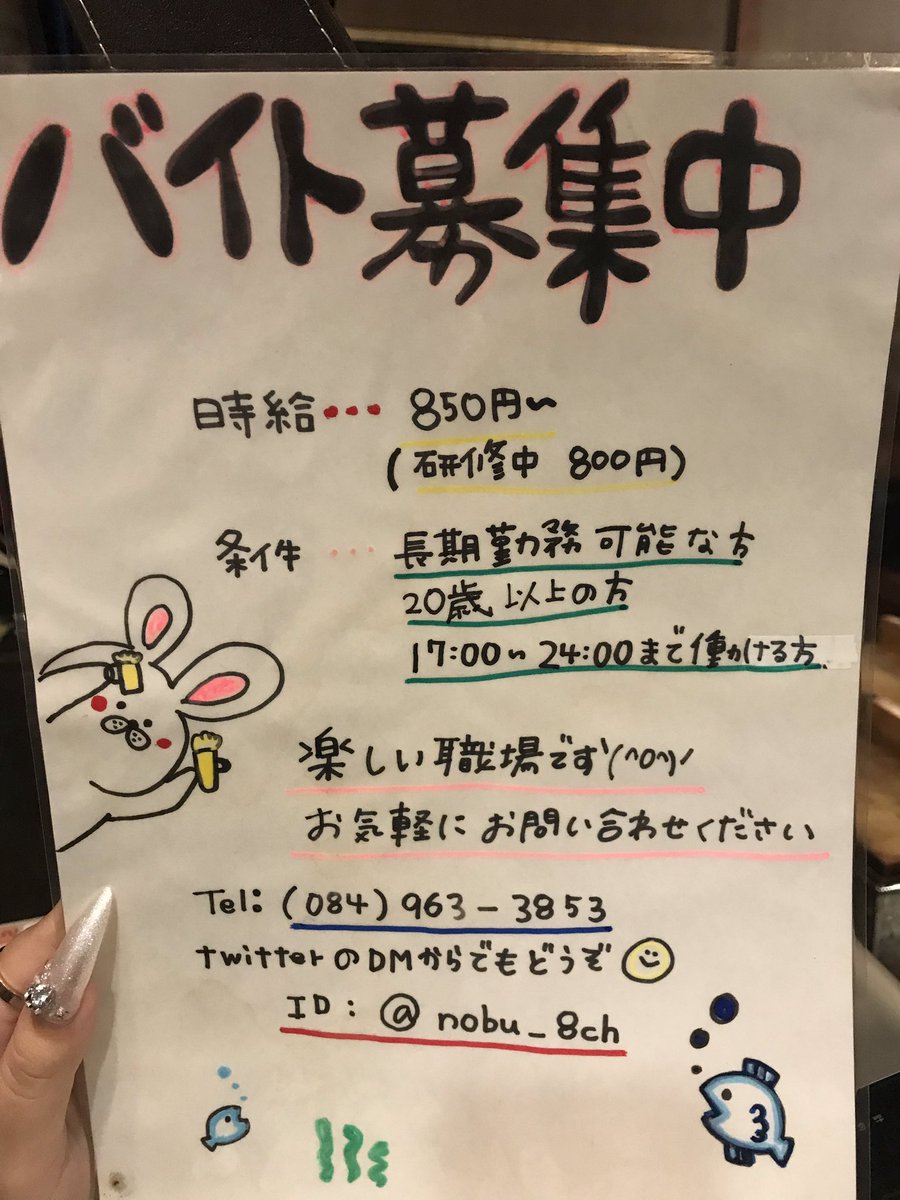 バイト募集中
時給••• 850円〜
(研修中 800円)
条件••• 長期勤務可能な方
20歳以上の方
17:00〜24:00まで働ける方
楽しい職場です\(^o^)/
お気軽にお問い合わせください
Tel: (084) 963-3853
twitterのDMからでもどうぞ
ID: @nobu_8ch